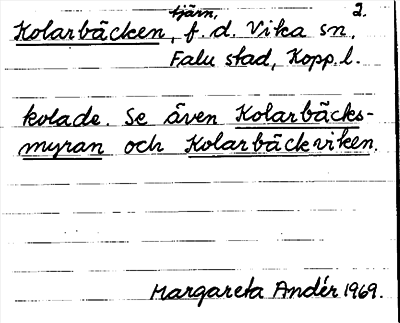 2.
Kolarbäcken, tjärn, f. d. Vika sn,
Falu stad, Kopp. l.
kolade. Se även Kolarbäcks-
myran och Kolarbäckviken.
Margareta Andér 1969.